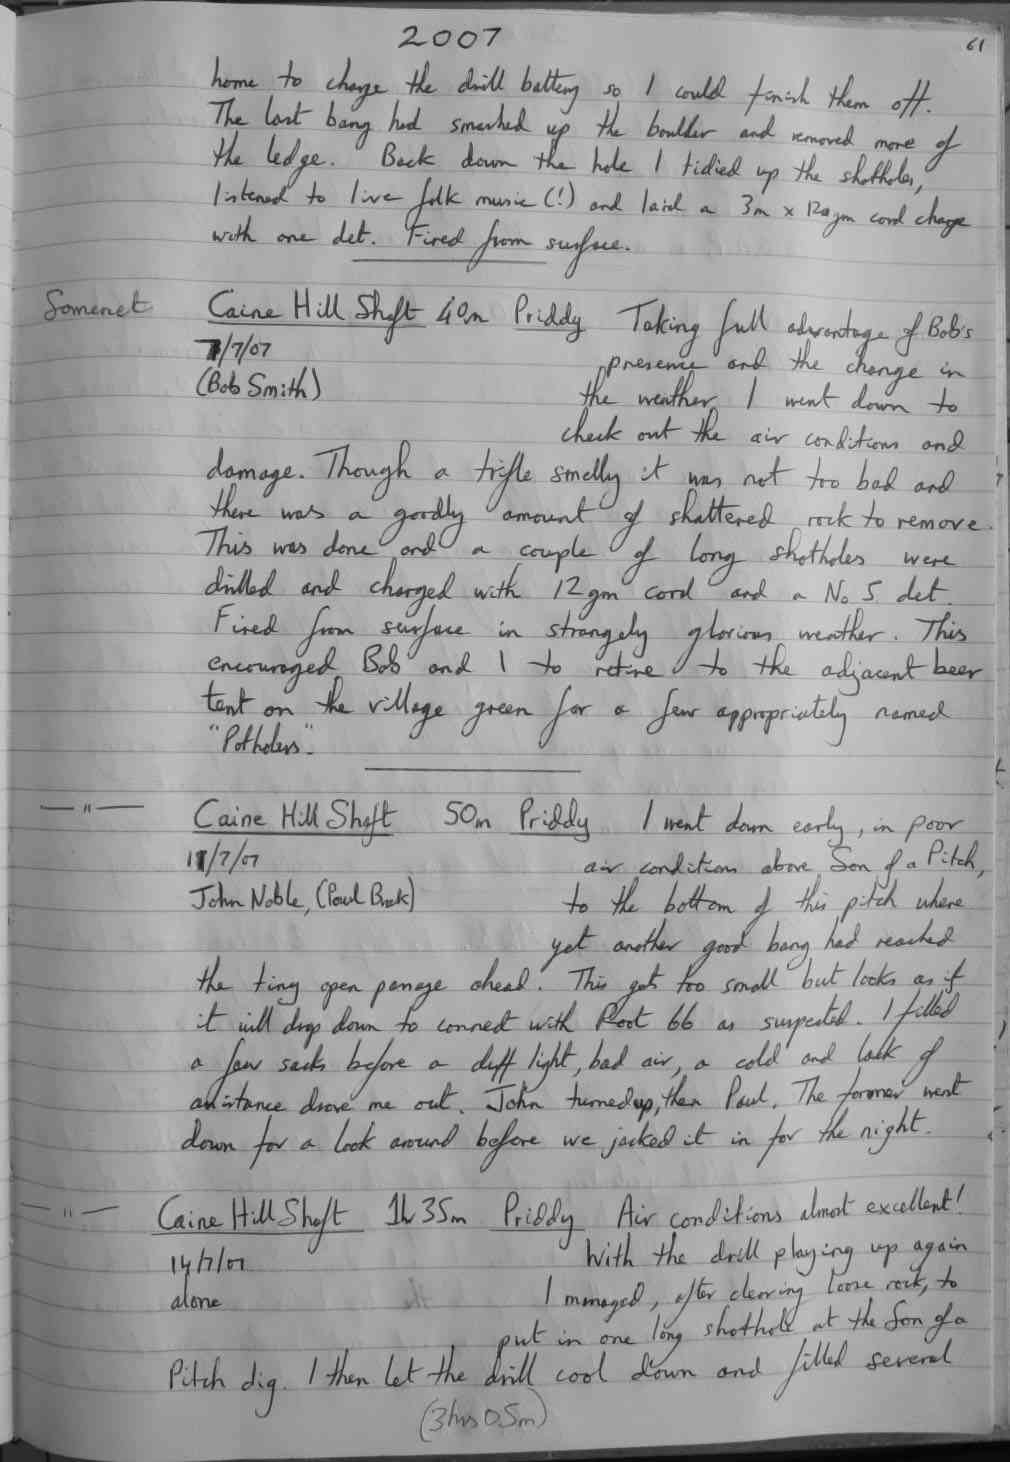 2007
61
home to charge the drill battery so I could finish them off.
The last bang had smashed up the boulder and removed more of
the ledge. Back down the hole I tidied up the shotholes,
listened to live folk music (!) and laid a 3m x 12gm cord charge
with one det. Fired from surface.
Somerset Caine Hill Shaft 40m Priddy Taking full advantage of Bob's
7/7/07 presence and the change in
(Bob Smith) the weather I went down to
check out the air conditions and
damage. Though a trifle smelly it was not too bad and
there was a goodly amount of shattered rock to remove.
This was done and a couple of long shotholes were
drilled and charged with 12gm cord and a No 5 det.
Fired from surface in strangely glorious weather. This
encouraged Bob and I to retire to the adjacent beer
tent on the village green for a few appropriately named
"Potholers".
— " — Caine Hill Shaft 50m Priddy I went down early, in poor
11/7/07 air conditions above Son of a Pitch,
John Noble, (Paul Brock) to the bottom of this pitch where
yet another good bang had reached
the tiny open passage ahead. This gets too small but looks as if
it will drop down to connect with Root 66 as suspected. I filled
a few sacks before a duff light, bad air, a cold and lack of
assistance drove me out. John turned up, then Paul. The former went
down for a look around before we jacked it in for the night.
— " — Caine Hill Shaft 1hr 35m Priddy Air conditions almost excellent!
14/7/07 With the drill playing up again
alone I managed, after clearing loose rock, to
put in one long shothole at the Son of a
Pitch dig. I then let the drill cool down and filled several
(3hrs 0.5m)